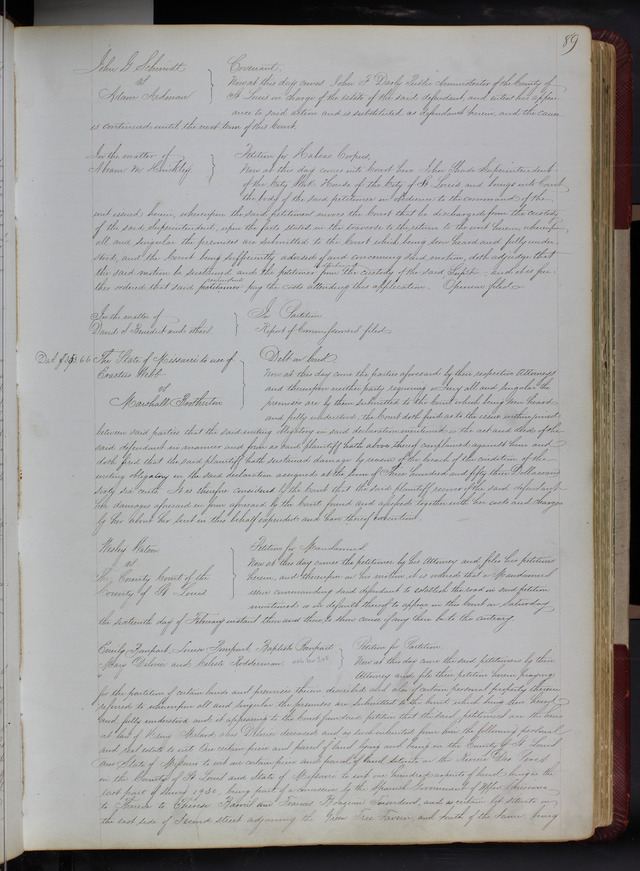 89
John G Schmidt
vs
Adam
Covenant.
Now at this day comes John F Darby Public Administrator of the County of
St Louis in charge of the estate of the said defendant, and enters his appear-
ance to said action and is substituted as defendant herein, and the cause
is continued until the next term of this Court.
In the matter of
Abram M Hinkley
Petition for Habeas Corpus,
Now at this day comes into Court here John Superintendent
of the City Work House of the City of St Louis and brings into Court
the body of the said petitioner in obedience to the command of the
writ issued herein, whereupon the said petitioner moves the Court that he be discharged from the custody
of the said Superintendent, upon the facts stated in the return to the writ herein, whereupon
all and singular the premises are submitted to the Court which being now heard and fully under-
stood, and the Court being sufficiently advised of and concerning said motion, doth adjudge that
the said motion be sustained and the petitioner from the custody of the said Supt and it is fur-
ther ordered that said pay the costs attending this application. Opinion filed
In the matter of
David S Benedict and others
In Partition
Report of Commissioners filed
The State of Missouri to use of
Erastus Webb
vs
Marshall Brotherton
Debt on bond
Now at this day come the parties aforesaid by their respective Attorneys
and thereupon neither party requiring a Jury all and singular the
premises are by them submitted to the Court which being now heard
and fully understood, the Court doth find as to the issue within joined
between said parties that the said writing obligatory in said declaration mentioned is the act and deed of the
said defendant in manner and form as said plaintiff hath above thereof complained against him and
doth find that the said plaintiff hath sustained damage by reason of the breach of the condition of the
writing obligatory in the said declaration assigned at the sum of Three hundred and fifty three Dollars and
sixty six cents. It is therefore considered by the Court that the said plaintiff recover of the said defendant
her damages aforesaid in form aforesaid by the Court found and assessed together with her costs and charges
by her about her suit in this behalf expended and have thereof execution.
Wesley Watson
vs
The County Court of the
County of St Louis
Petition for Mandamus
Now at this day comes the petitioner by his Attorney and files his petition
herein, and thereupon on his motion it is ordered that a Mandamus
issue commanding said defendant to establish the road in said petition
mentioned or in default thereof to appear in this Court on Saturday
the sixteenth day of February instant then and there to shew cause if any there be to the contrary
Emily Pourpart, Louis Pourpart Baptiste Pourpart
Mary Delivie and Celeste Robberman
Petition for Partition
Now at this day come the said petitioners by their
Attorney and file their petition herein praying
for the partition of certain lands and premises therein described and also of certain personal property therein
referred to whereupon all and singular the premises are submitted to the Court which being now heard
and fully understood and it appearing to the Court from said petition that the said petitioners are the heirs
at law of deceased and as such inherited from him the following personal
and real estate to wit One certain piece and parcel of land lying and being in the County of St Louis
and State of Missouri to wit one certain piece and parcel of land situate on the Rivière Des Pères
in the County of St Louis and State of Missouri to wit one hundred arpents of land being in the
east part of Survey 1930, being part of a concession by the Spanish Government of Upper Louisiana
to and certain lot situate on
the east side of Second street adjoining the Green Tree Tavern and south of the same being